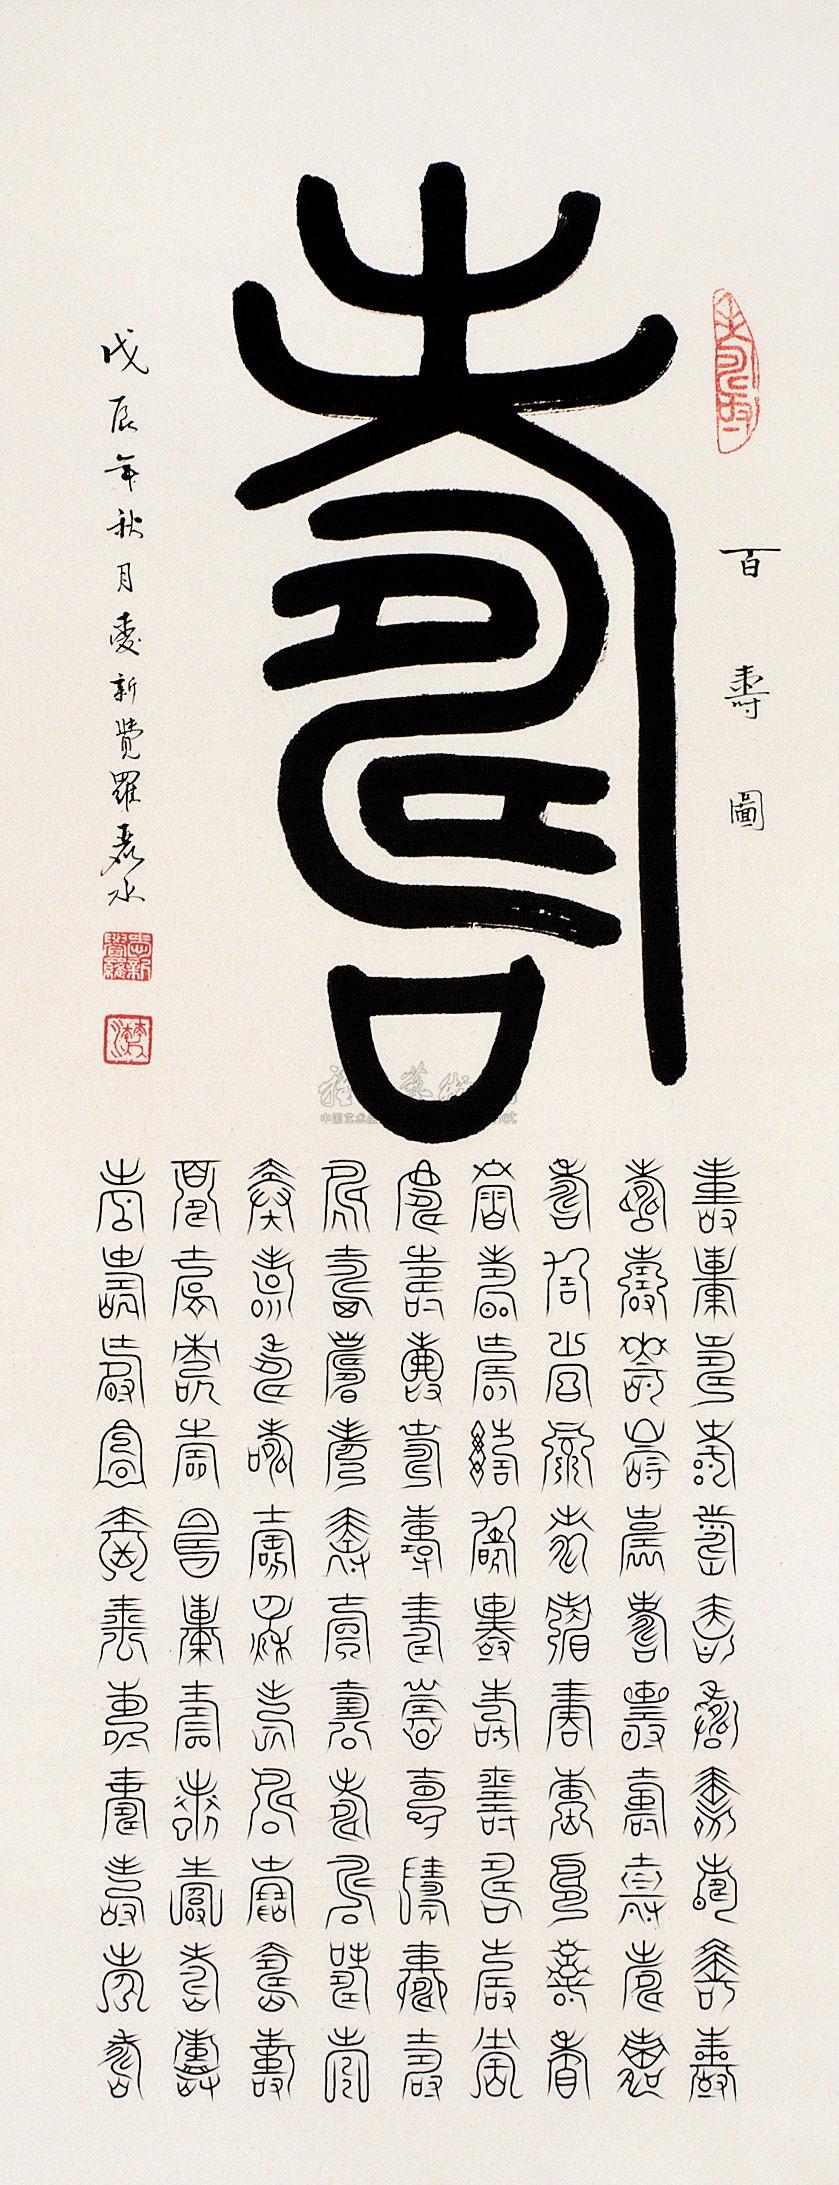 百壽圖
壽
戊辰年秋月愛新覺羅
愛新覺羅
壽壽壽壽壽壽壽壽壽壽壽
壽壽壽壽壽壽壽壽壽壽壽
壽壽壽壽壽壽壽壽壽壽壽
壽壽壽壽壽壽壽壽壽壽壽
壽壽壽壽壽壽壽壽壽壽壽
壽壽壽壽壽壽壽壽壽壽壽
壽壽壽壽壽壽壽壽壽壽壽
壽壽壽壽壽壽壽壽壽壽壽
壽壽壽壽壽壽壽壽壽壽壽